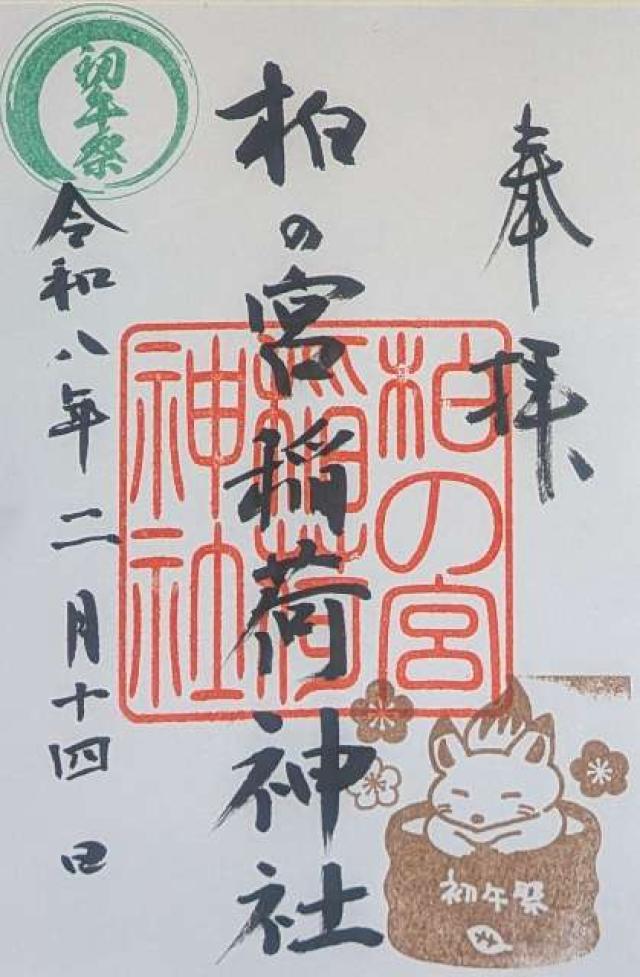 奉拝
柏の宮稲荷神社
柏の宮
稲荷
神社
初午祭
令和八年二月十四日
初午祭